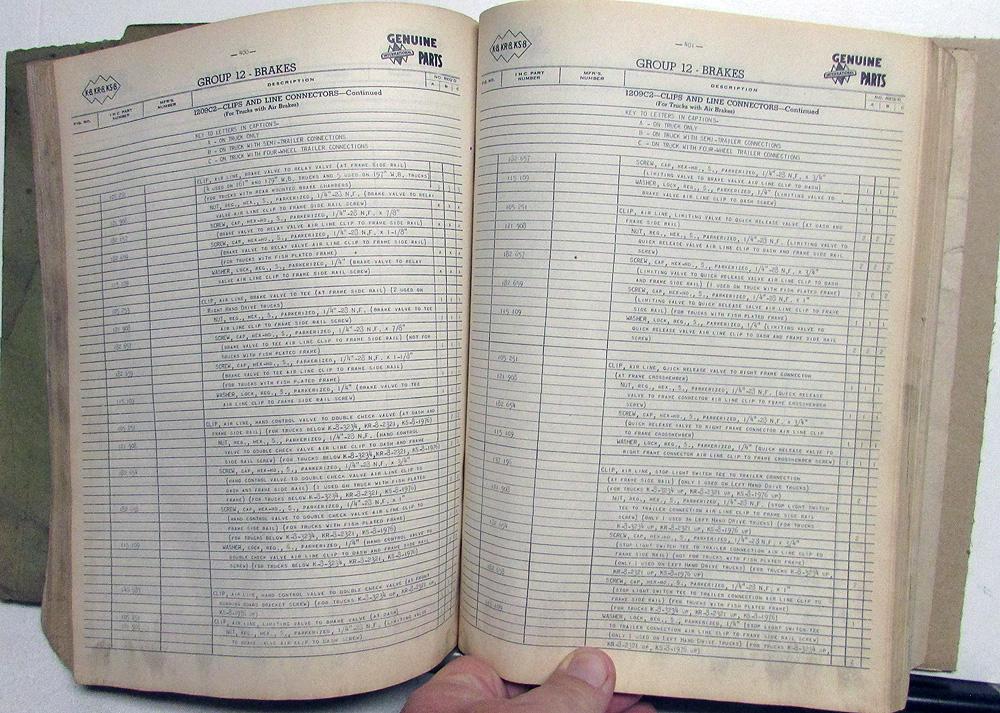 — 400 —
K-8, KR-8, KS-8
GENUINE
INTERNATIONAL
PARTS
GROUP 12 - BRAKES
FIG. NO.
I H C PART NUMBER
MFR'S. NUMBER
DESCRIPTION
NO. REQ'D
A B C
1209C2—CLIPS AND LINE CONNECTORS—Continued
(For Trucks with Air Brakes)
KEY TO LETTERS IN CAPTIONS-
A - ON TRUCK ONLY
B - ON TRUCK WITH SEMI-TRAILER CONNECTIONS
C - ON TRUCK WITH FOUR-WHEEL TRAILER CONNECTIONS
CLIP, AIR LINE, BRAKE VALVE TO RELAY VALVE (AT FRAME SIDE RAIL)
(4 USED ON 161" AND 179" W.B. TRUCKS AND 5 USED ON 197" W.B. TRUCKS)
(FOR TRUCKS WITH REAR MOUNTED BRAKE CHAMBERS)
NUT, REG., HEX., S., PARKERIZED, 1/4"-28 N.F. (BRAKE VALVE TO RELAY
VALVE AIR LINE CLIP TO FRAME SIDE RAIL SCREW)
SCREW, CAP, HEX-HD., S., PARKERIZED, 1/4"-28 N.F. X 7/8"
(BRAKE VALVE TO RELAY VALVE AIR LINE CLIP TO FRAME SIDE RAIL)
SCREW, CAP, HEX-HD., S., PARKERIZED, 1/4"-28 N.F. X 1-1/8"
(BRAKE VALVE TO RELAY VALVE AIR LINE CLIP TO FRAME SIDE RAIL)
(FOR TRUCKS WITH FISH PLATED FRAME)
WASHER, LOCK, REG., S., PARKERIZED, 1/4" (BRAKE VALVE TO RELAY
VALVE AIR LINE CLIP TO FRAME SIDE RAIL SCREW)
CLIP, AIR LINE, BRAKE VALVE TO TEE (AT FRAME SIDE RAIL) (2 USED ON
RIGHT HAND DRIVE TRUCKS)
NUT, REG., HEX., S., PARKERIZED, 1/4"-28 N.F. (BRAKE VALVE TO TEE
AIR LINE CLIP TO FRAME SIDE RAIL SCREW)
SCREW, CAP, HEX-HD., S., PARKERIZED, 1/4"-28 N.F. X 7/8"
(BRAKE VALVE TO TEE AIR LINE CLIP TO FRAME SIDE RAIL) (NOT FOR
TRUCKS WITH FISH PLATED FRAME)
SCREW, CAP, HEX-HD., S., PARKERIZED, 1/4"-28 N.F. X 1-1/8"
(BRAKE VALVE TO TEE AIR LINE CLIP TO FRAME SIDE RAIL)
(FOR TRUCKS WITH FISH PLATED FRAME)
WASHER, LOCK, REG., S., PARKERIZED, 1/4" (BRAKE VALVE TO TEE
AIR LINE CLIP TO FRAME SIDE RAIL SCREW)
CLIP, AIR LINE, HAND CONTROL VALVE TO DOUBLE CHECK VALVE (AT DASH AND
FRAME SIDE RAIL) (FOR TRUCKS BELOW K-8-3234, KR-8-2321, KS-8-1976)
NUT, REG., HEX., S., PARKERIZED, 1/4"-28 N.F. (HAND CONTROL
VALVE TO DOUBLE CHECK VALVE AIR LINE CLIP TO DASH AND FRAME
SIDE RAIL SCREW) (FOR TRUCKS BELOW K-8-3234, KR-8-2321, KS-8-1976)
SCREW, CAP, HEX-HD., S., PARKERIZED, 1/4"-28 N.F. X 3/4"
(HAND CONTROL VALVE TO DOUBLE CHECK VALVE AIR LINE CLIP TO
DASH AND FRAME SIDE RAIL) (1 USED ON TRUCK WITH FISH PLATED
FRAME) (FOR TRUCKS BELOW K-8-3234, KR-8-2321, KS-8-1976)
SCREW, CAP, HEX-HD., S., PARKERIZED, 1/4"-28 N.F. X 1"
(HAND CONTROL VALVE TO DOUBLE CHECK VALVE AIR LINE CLIP TO
FRAME SIDE RAIL) (FOR TRUCKS WITH FISH PLATED FRAME)
(FOR TRUCKS BELOW K-8-3234, KR-8-2321, KS-8-1976)
115 109
WASHER, LOCK, REG., S., PARKERIZED, 1/4" (HAND CONTROL VALVE TO
DOUBLE CHECK VALVE AIR LINE CLIP TO DASH AND FRAME SIDE RAIL
SCREW) (FOR TRUCKS BELOW K-8-3234, KR-8-2321, KS-8-1976)
CLIP, AIR LINE, HAND CONTROL VALVE TO DOUBLE CHECK VALVE (AT FRONT
RUNNING BOARD BRACKET SCREW) (FOR TRUCKS K-8-3234 UP, KR-8-2321 UP,
KS-8-1976 UP)
CLIP, AIR LINE, LIMITING VALVE TO BRAKE VALVE (AT DASH)
NUT, REG., HEX., S., PARKERIZED, 1/4"-28 N.F. (LIMITING VALVE
TO BRAKE VALVE AIR LINE CLIP TO DASH SCREW)
— 401 —
K-8, KR-8, KS-8
GENUINE
INTERNATIONAL
PARTS
GROUP 12 - BRAKES
FIG. NO.
I H C PART NUMBER
MFR'S. NUMBER
DESCRIPTION
NO. REQ'D
A B C
1209C2—CLIPS AND LINE CONNECTORS—Continued
(For Trucks with Air Brakes)
KEY TO LETTERS IN CAPTIONS-
A - ON TRUCK ONLY
B - ON TRUCK WITH SEMI-TRAILER CONNECTIONS
C - ON TRUCK WITH FOUR-WHEEL TRAILER CONNECTIONS
182 657
SCREW, CAP, HEX-HD., S., PARKERIZED, 1/4"-28 N.F. X 3/4"
(LIMITING VALVE TO BRAKE VALVE AIR LINE CLIP TO DASH)
115 109
WASHER, LOCK, REG., S., PARKERIZED, 1/4" (LIMITING VALVE TO
BRAKE VALVE AIR LINE CLIP TO DASH SCREW)
105 251
CLIP, AIR LINE, LIMITING VALVE TO QUICK RELEASE VALVE (AT DASH AND
FRAME SIDE RAIL)
121 908
NUT, REG., HEX., S., PARKERIZED, 1/4"-28 N.F. (LIMITING VALVE TO
QUICK RELEASE VALVE AIR LINE CLIP TO DASH AND FRAME SIDE RAIL
SCREW)
182 657
SCREW, CAP, HEX-HD., S., PARKERIZED, 1/4"-28 N.F. X 3/4"
(LIMITING VALVE TO QUICK RELEASE VALVE AIR LINE CLIP TO DASH
AND FRAME SIDE RAIL) (1 USED ON TRUCK WITH FISH PLATED FRAME)
182 659
SCREW, CAP, HEX-HD., S., PARKERIZED, 1/4"-28 N.F. X 1"
(LIMITING VALVE TO QUICK RELEASE VALVE AIR LINE CLIP TO FRAME
SIDE RAIL) (FOR TRUCKS WITH FISH PLATED FRAME)
115 109
WASHER, LOCK, REG., S., PARKERIZED, 1/4" (LIMITING VALVE TO
QUICK RELEASE VALVE AIR LINE CLIP TO DASH AND FRAME SIDE RAIL
SCREW)
105 251
CLIP, AIR LINE, QUICK RELEASE VALVE TO RIGHT FRAME CONNECTOR
(AT FRAME CROSSMEMBER)
121 908
NUT, REG., HEX., S., PARKERIZED, 1/4"-28 N.F. (QUICK RELEASE
VALVE TO FRAME CONNECTOR AIR LINE CLIP TO FRAME CROSSMEMBER
SCREW)
182 654
SCREW, CAP, HEX-HD., S., PARKERIZED, 1/4"-28 N.F. X 3/4"
(QUICK RELEASE VALVE TO RIGHT FRAME CONNECTOR AIR LINE CLIP
TO FRAME CROSSMEMBER)
115 109
WASHER, LOCK, REG., S., PARKERIZED, 1/4" (QUICK RELEASE VALVE TO
RIGHT FRAME CONNECTOR AIR LINE CLIP TO FRAME CROSSMEMBER SCREW)
CLIP, AIR LINE, STOP LIGHT SWITCH TEE TO TRAILER CONNECTION
(AT FRAME SIDE RAIL) (ONLY 1 USED ON LEFT HAND DRIVE TRUCKS)
(FOR TRUCKS K-8-3234 UP, KR-8-2321 UP, KS-8-1976 UP)
NUT, REG., HEX., S., PARKERIZED, 1/4"-28 N.F. (STOP LIGHT SWITCH
TEE TO TRAILER CONNECTION AIR LINE CLIP TO FRAME SIDE RAIL
SCREW) (ONLY 1 USED IN LEFT HAND DRIVE TRUCKS) (FOR TRUCKS
K-8-3234 UP, KR-8-2321 UP, KS-8-1976 UP)
SCREW, CAP, HEX-HD., S., PARKERIZED, 1/4"-28 N.F. X 3/4"
(STOP LIGHT SWITCH TEE TO TRAILER CONNECTION AIR LINE CLIP TO
FRAME SIDE RAIL) (NOT FOR TRUCKS WITH FISH PLATED FRAME)
(ONLY 1 USED IN LEFT HAND DRIVE TRUCKS) (FOR TRUCKS K-8-3234 UP,
KR-8-2321 UP, KS-8-1976 UP)
SCREW, CAP, HEX-HD., S., PARKERIZED, 1/4"-28 N.F. X 1"
(STOP LIGHT SWITCH TEE TO TRAILER CONNECTION AIR LINE CLIP TO
FRAME SIDE RAIL) (FOR TRUCKS WITH FISH PLATED FRAME)
(FOR TRUCKS K-8-3234 UP, KR-8-2321 UP, KS-8-1976 UP)
WASHER, LOCK, REG., S., PARKERIZED, 1/4" (STOP LIGHT SWITCH TEE
TO TRAILER CONNECTION AIR LINE CLIP TO FRAME SIDE RAIL SCREW)
(ONLY 1 USED IN LEFT HAND DRIVE TRUCKS) (FOR TRUCKS K-8-3234 UP,
KR-8-2321 UP, KS-8-1976 UP)